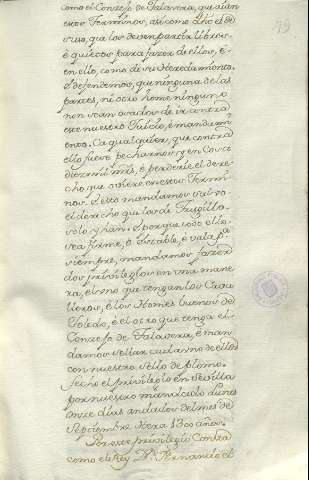 como el Conzejo de Talavera, que aian
estos Terminos, asi como dho el De
viso, que los deven partir libres
è quitos para fazer de ellos, è
en ello, como de su Heredamiento.
E defendemos, que ninguna de las
partes, ni otro home ninguno
non sean osados de ir contra
este nuestro Juicio, è mandami
ento. Ca qualquier, que contra
ello fuese pecharnos y en Coto
diez mil mrs, è perderie el dere
cho que oviere en estos Termi
nos. Desto mandamos salvo
el derecho que los de Trugillo
solo y han. E porque todo ello
sea firme, è Estable, è vala pa
siempre, mandamos fazer
dos privilegios en una mane
ra, el uno que tengan los Cava
lleros, è los Homes buenos de
Toledo, è el otro que tenga el
Conzejo de Talavera, è man
damos sellar cada uno de ellos
con nuestro sello de plomo.
Fecho el privilegio en Sevilla
por nuestro mandado Lunes
once dias andados del mes de
Septiembre Hera 1300 años.
Por este privilegio Consta
como el Rey Dn Fernando el
19